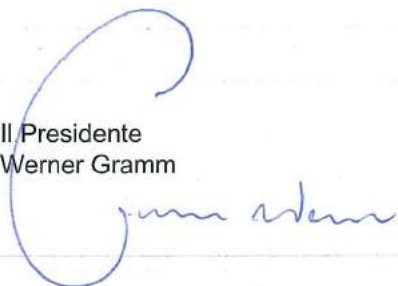 Il Presidente
Werner Gramm